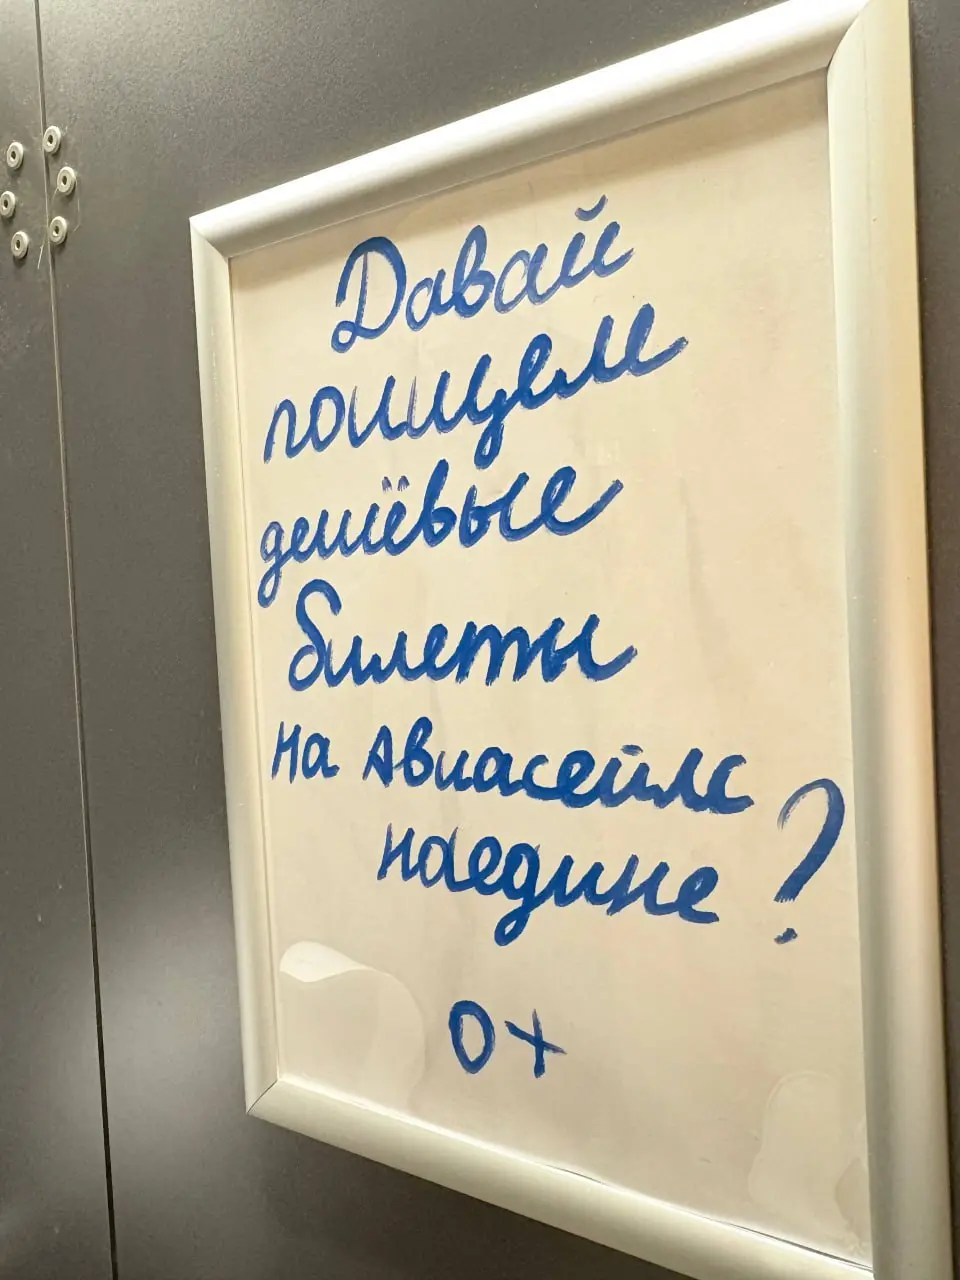 Давай
поищем
дешёвые
билеты
на Авиасейлс
наедине?
0+